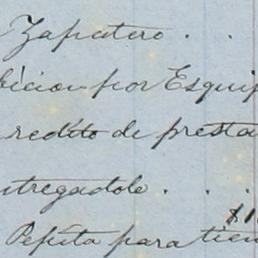 Zapatero . .
bicion por Esquip
redito de presta
ntregadole . . .
$1
Pepita para tien